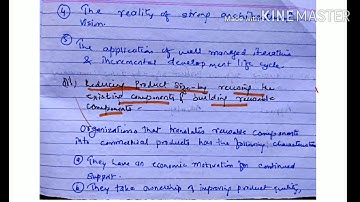 ④ The reality of strong
vision.
Made with KINEMASTER
⑤ The application of well managed iterative
& incremental development life cycle.
Reducing Product Size by reusing the
existing components & building reusable
components -
Organizations that translates reusable components
into commercial products has the following characteristics
They have an economic motivation for continued
support.
⑥ They take ownership of improving product quality,